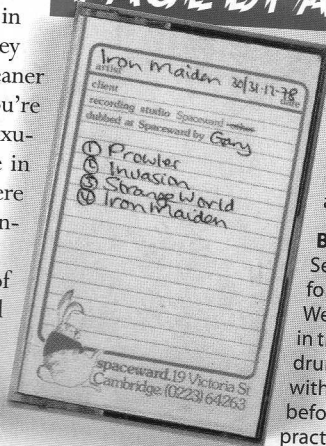 in
ey
eaner
u're
xu-
e in
ere
n-
of
Iron Maiden 30/31-12-78
artist date
client
recording studio Spaceward
dubbed at Spaceward by Gary
① Prowler
② Invasion
③ Strange World
④ Iron Maiden
spaceward. 19 Victoria St
Cambridge (0223) 64263
B
Se
fo
We
in t
dru
with
befo
pract